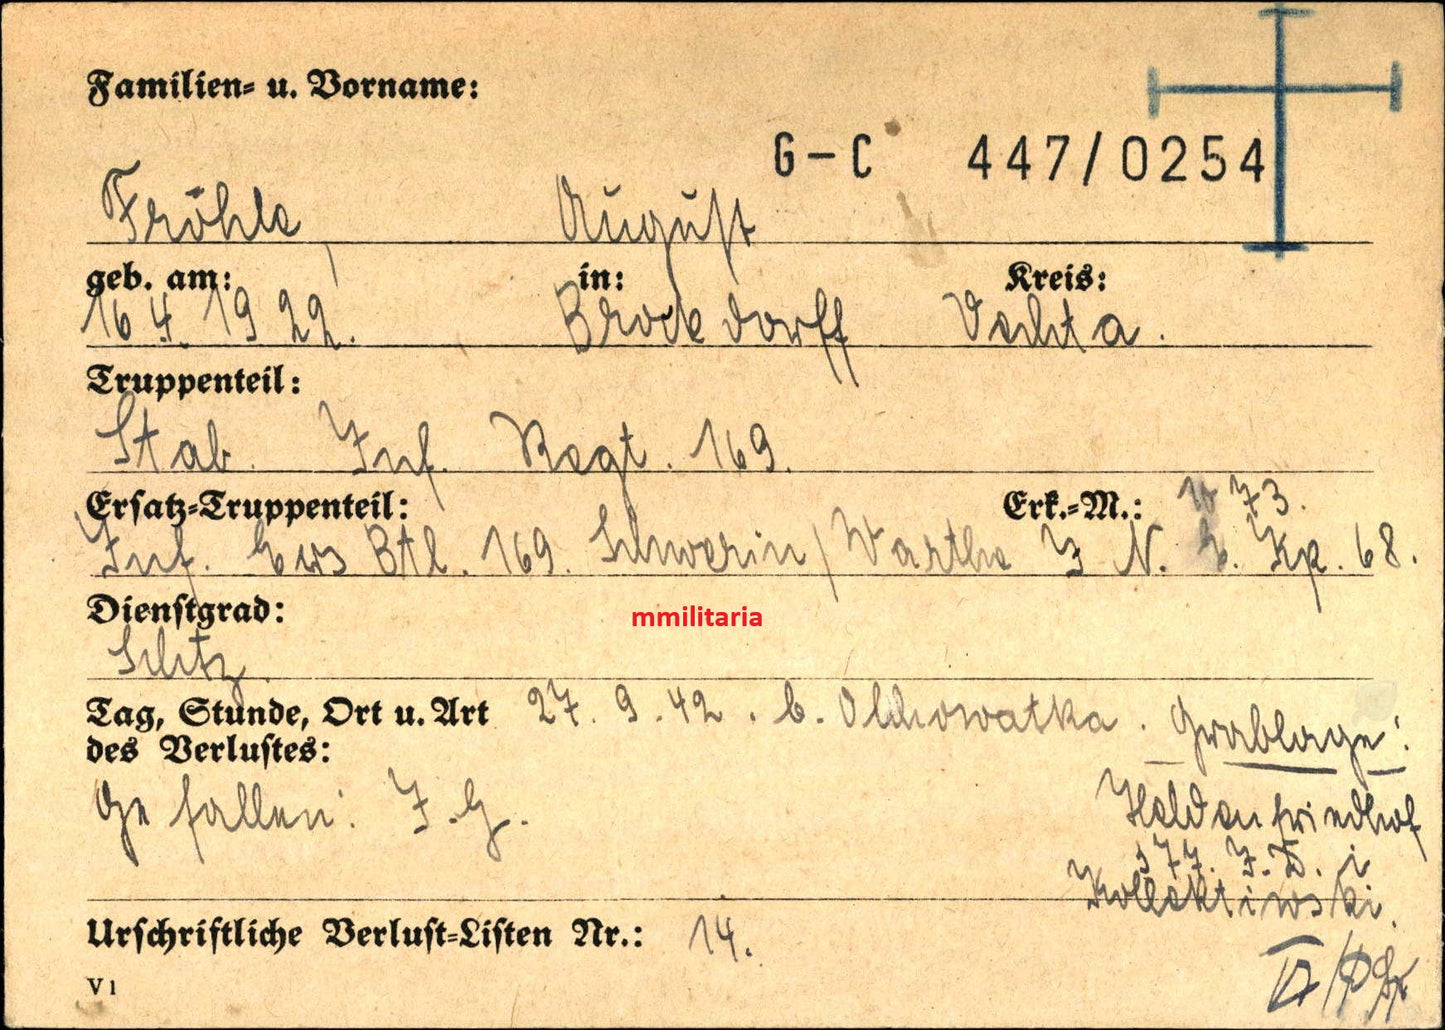 Familien- u. Vorname:
G-C 447/0254
Fröhle, August
geb. am: in: Kreis:
16 4. 1922. Brockdorff Vechta.
Truppenteil:
Stab. Inf. Regt. 169.
Ersatz-Truppenteil: Erk.-M.: 73.
Inf. Ers Btl. 169. Schwerin/Warthe I N. E. Kp. 68.
Dienstgrad:
mmilitaria
Schtz.
Tag, Stunde, Ort u. Art 27. 9. 42. b. Olchowatka. Grablage:
des Verlustes:
Gefallen: I.G. Heldenfriedhof
377. I.D. i
Kollektiwski.
Urschriftliche Verlust-Listen Nr.: 14.
V 1